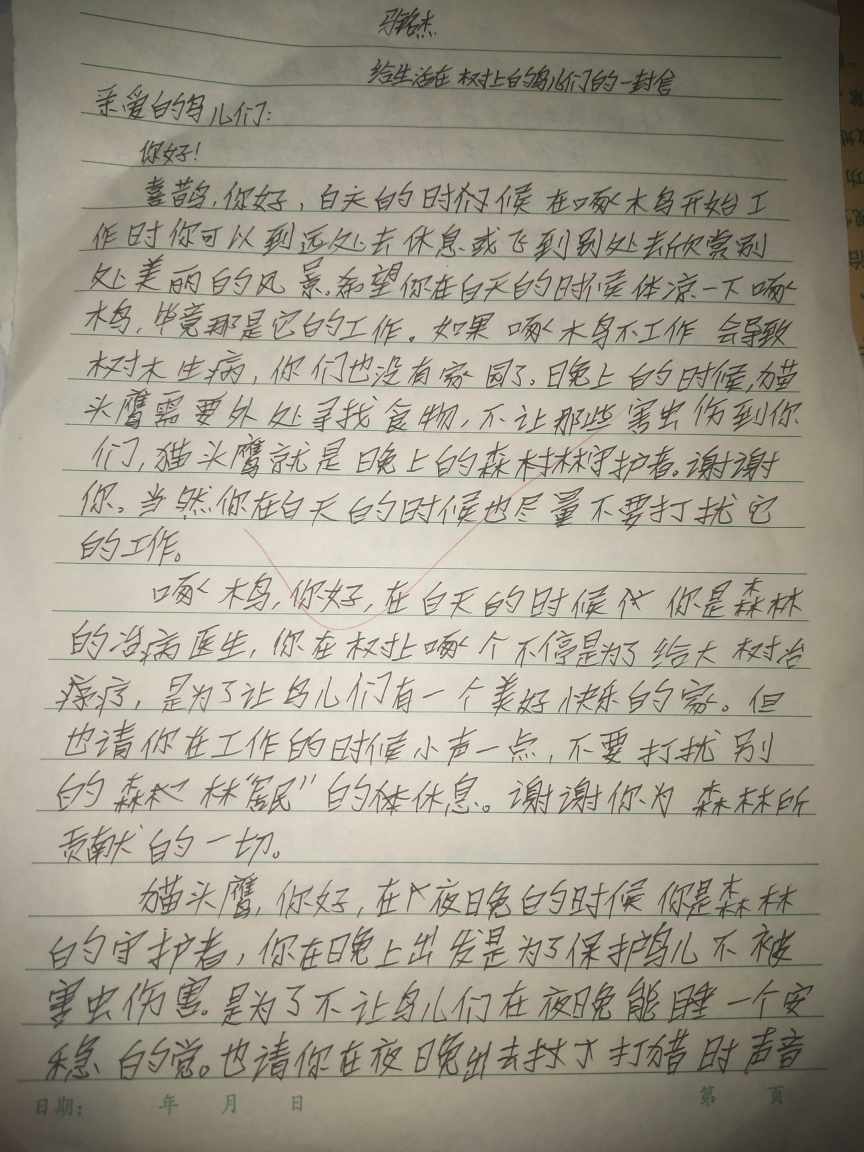 给生活在树上的鸟儿们的一封信
亲爱的鸟儿们:
你好!
喜鹊,你好,白天的时候在啄木鸟开始工
作时你可以到远处去休息或飞到别处去欣赏别
处美丽的风景。希望你在白天的时候体凉一下啄
木鸟,毕竟那是它的工作。如果啄木鸟不工作会导致
树木生病,你们也没有家园了。晚上的时候,猫
头鹰需要外处寻找食物,不让那些害虫伤到你
们,猫头鹰就是晚上的森林守护者。谢谢
你。当然你在白天的时候也尽量不要打扰它
的工作。
啄木鸟,你好,在白天的时候你是森林
的治病医生,你在树上啄个不停是为了给大树治
疗,是为了让鸟儿们有一个美好快乐的家。但
也请你在工作的时候小声一点,不要打扰别
的森林“居民”的休息。谢谢你为森林所
贡献的一切。
猫头鹰,你好,在夜晚的时候你是森林
的守护者,你在晚上出发是为了保护鸟儿不被
害虫伤害。是为了不让鸟儿们在夜晚能睡一个安
稳的觉。也请你在夜晚出去打猎时声音
日期: 年 月 日 第 页